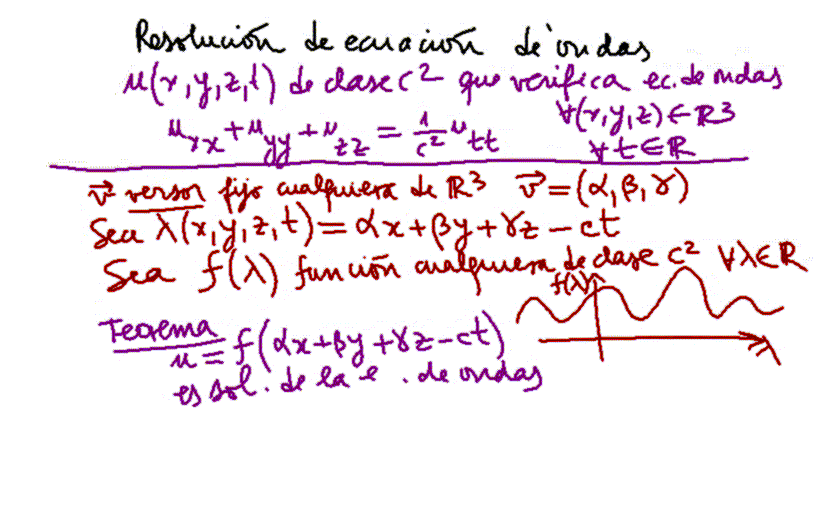 Resolución de ecuación de ondas
u(x,y,z,t) de clase C² que verifica ec. de ondas
u_xx + u_yy + u_zz = 1/c² u_tt ∀(x,y,z)∈R3
∀t∈R
v⃗ versor fijo cualquiera de R³ v⃗=(α,β,γ)
Sea λ(x,y,z,t)=αx+βy+γz-ct
Sea f(λ) función cualquiera de clase C² ∀λ∈R
f(λ)
λ
Teorema
u=f(αx+βy+γz-ct)
es sol. de la e . de ondas